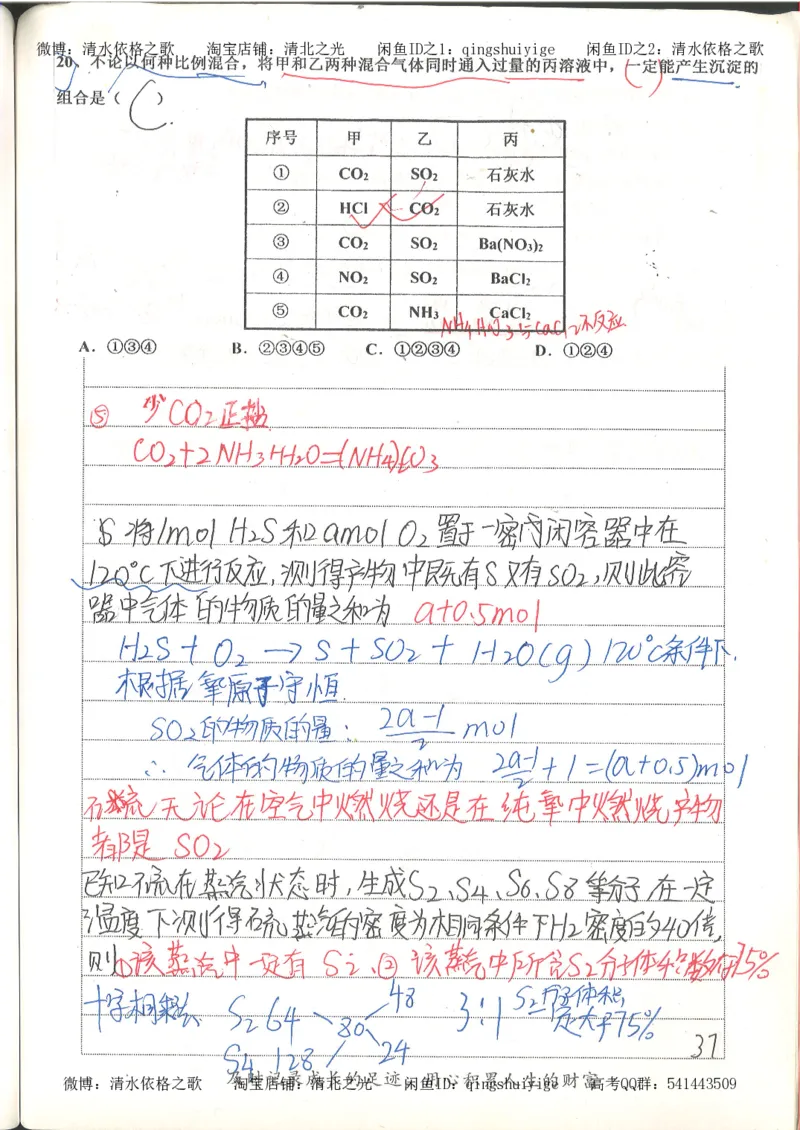 微博：清水依格之歌 淘宝店铺：清北之光 闲鱼ID之1：qingshuiyige 闲鱼ID之2：清水依格之歌
20、不论以何种比例混合，将甲和乙两种混合气体同时通入过量的丙溶液中，一定能产生沉淀的
组合是（ C ）
序号 甲 乙 丙
① CO₂ SO₂ 石灰水
② HCl CO₂ 石灰水
③ CO₂ SO₂ Ba(NO₃)₂
④ NO₂ SO₂ BaCl₂
⑤ CO₂ NH₃ CaCl₂
与CaCl₂不反应
A．①③④ B．②③④⑤ C．①②③④ D．①②④
⑤ 少CO₂正盐
CO₂+2NH₃+H₂O=(NH₄)₂CO₃
将1mol H₂S和amol O₂置于一密闭容器中在
120℃下进行反应,测得产物中既有S又有SO₂,则此容
器中气体的物质的量之和为 a+0.5mol
H₂S + O₂ → S + SO₂ + H₂O(g) 120℃条件下.
根据氧原子守恒
SO₂的物质的量: (2a-1)/2 mol
∴ 气体的物质的量之和为 (2a-1)/2+1=(a+0.5)mol
石硫无论在空气中燃烧还是在纯氧中燃烧产物
都是 SO₂
已知硫在蒸汽状态时,生成S₂、S₄、S₆、S₈等分子,在一定
温度下测得硫蒸汽的密度为相同条件下H₂密度的40倍,
则①该蒸汽中一定有S₂、②该蒸汽中所含S₂分子体积分数大于75%
十字相乘法 S₂ 64 80 48 3:1 S₂分子体积
一定大于75%
S₄ 128 24
37
及时记录成长的足迹 用心积累人生的财富
微博：清水依格之歌 淘宝店铺：清北之光 闲鱼ID：qingshuiyige 高考QQ群：541443509